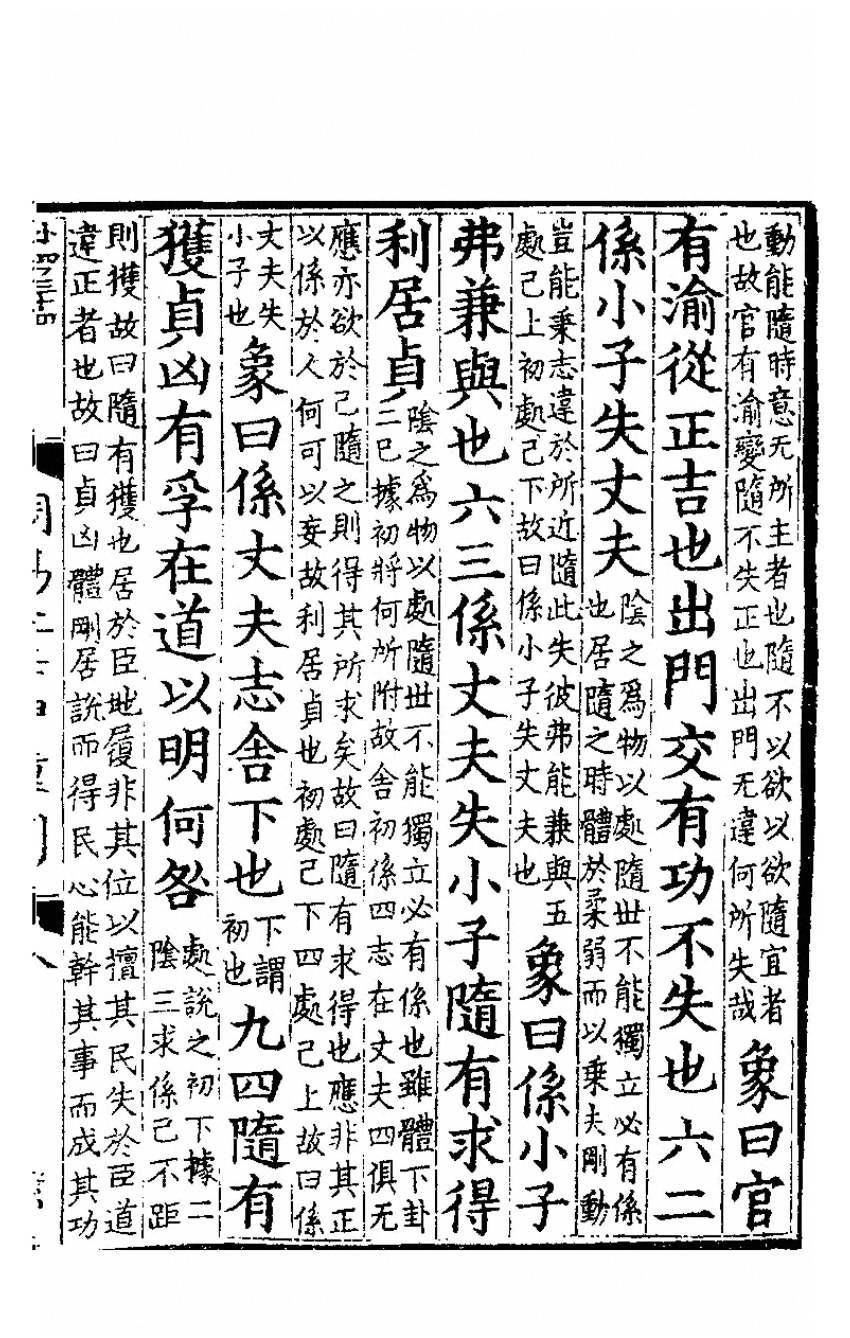 動能隨時意无所主者也隨不以欲以欲隨宜者
也故官有渝變隨不失正也出門无違何所失哉
象曰官
有渝從正吉也出門交有功不失也六二
係小子失丈夫
陰之爲物以處隨世不能獨立必有係
也居隨之時體於柔弱而以乗夫剛動
豈能秉志違於所近隨此失彼弗能兼與五
處己上初處己下故曰係小子失丈夫也
象曰係小子
弗兼與也六三係丈夫失小子隨有求得
利居貞
陰之爲物以處隨世不能獨立必有係也雖體下卦
二已據初將何所附故舍初係四志在丈夫四俱无
應亦欲於己隨之則得其所求矣故曰隨有求得也應非其正
以係於人何可以妄故利居貞也初處己下四處己上故曰係
丈夫失
小子也
象曰係丈夫志舍下也
下謂
初也
九四隨有
獲貞凶有孚在道以明何咎
處說之初下據二
陰三求係己不距
則獲故曰隨有獲也居於臣地履非其位以擅其民失於臣道
違正者也故曰貞凶體剛居說而得民心能幹其事而成其功
八